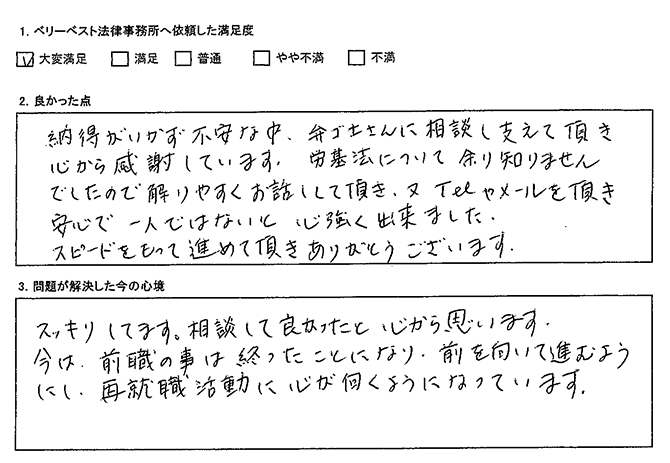 1. ベリーベスト法律事務所へ依頼した満足度
☑ 大変満足 □ 満足 □ 普通 □ やや不満 □ 不満
2. 良かった点
納得がいかず不安な中、弁ゴ士さんに相談し支えて頂き
心から感謝しています。労基法について余り知りません
でしたので解りやすくお話しして頂き、又Telやメールを頂き
安心で一人ではないと心強く出来ました。
スピードをもって進めて頂きありがとうございます。
3. 問題が解決した今の心境
スッキリしてます。相談して良かったと心から思います。
今は、前職の事は終ったことになり、前を向いて進むよう
にし、再就職活動に心が向くようになっています。